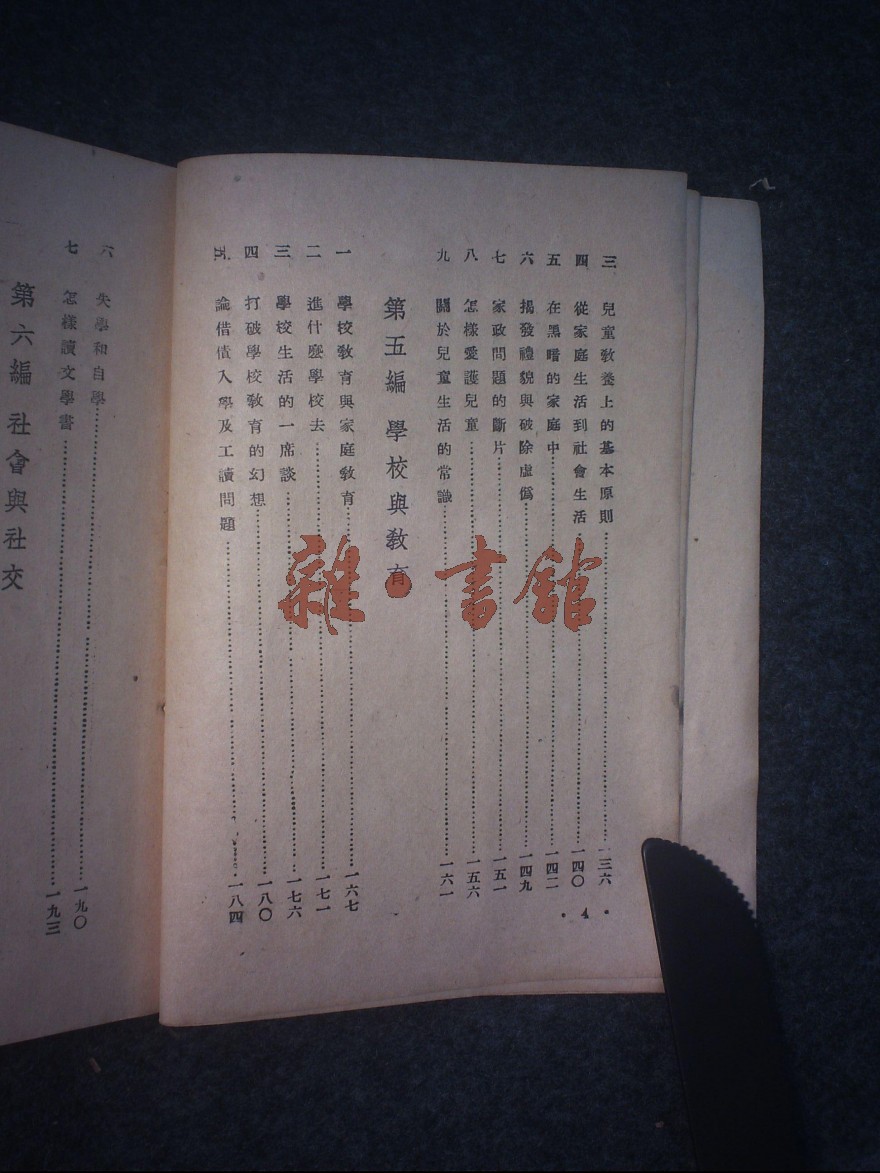 三 兒童敎養上的基本原則 一三六
四 從家庭生活到社會生活 一四〇
五 在黑暗的家庭中 一四二
六 揭發禮貌與破除虛僞 一四九
七 家政問題的斷片 一五一
八 怎樣愛護兒童 一五六
九 關於兒童生活的常識 一六一
第五編 學校與敎育
一 學校敎育與家庭敎育 一六七
二 進什麼學校去 一七一
三 學校生活的一席談 一七六
四 打破學校敎育的幻想 一八〇
五 論借債入學及工讀問題 一八四
· 4 ·
六 失學和自學 一九〇
七 怎樣讀文學書 一九三
第六編 社會與社交
雜·書館